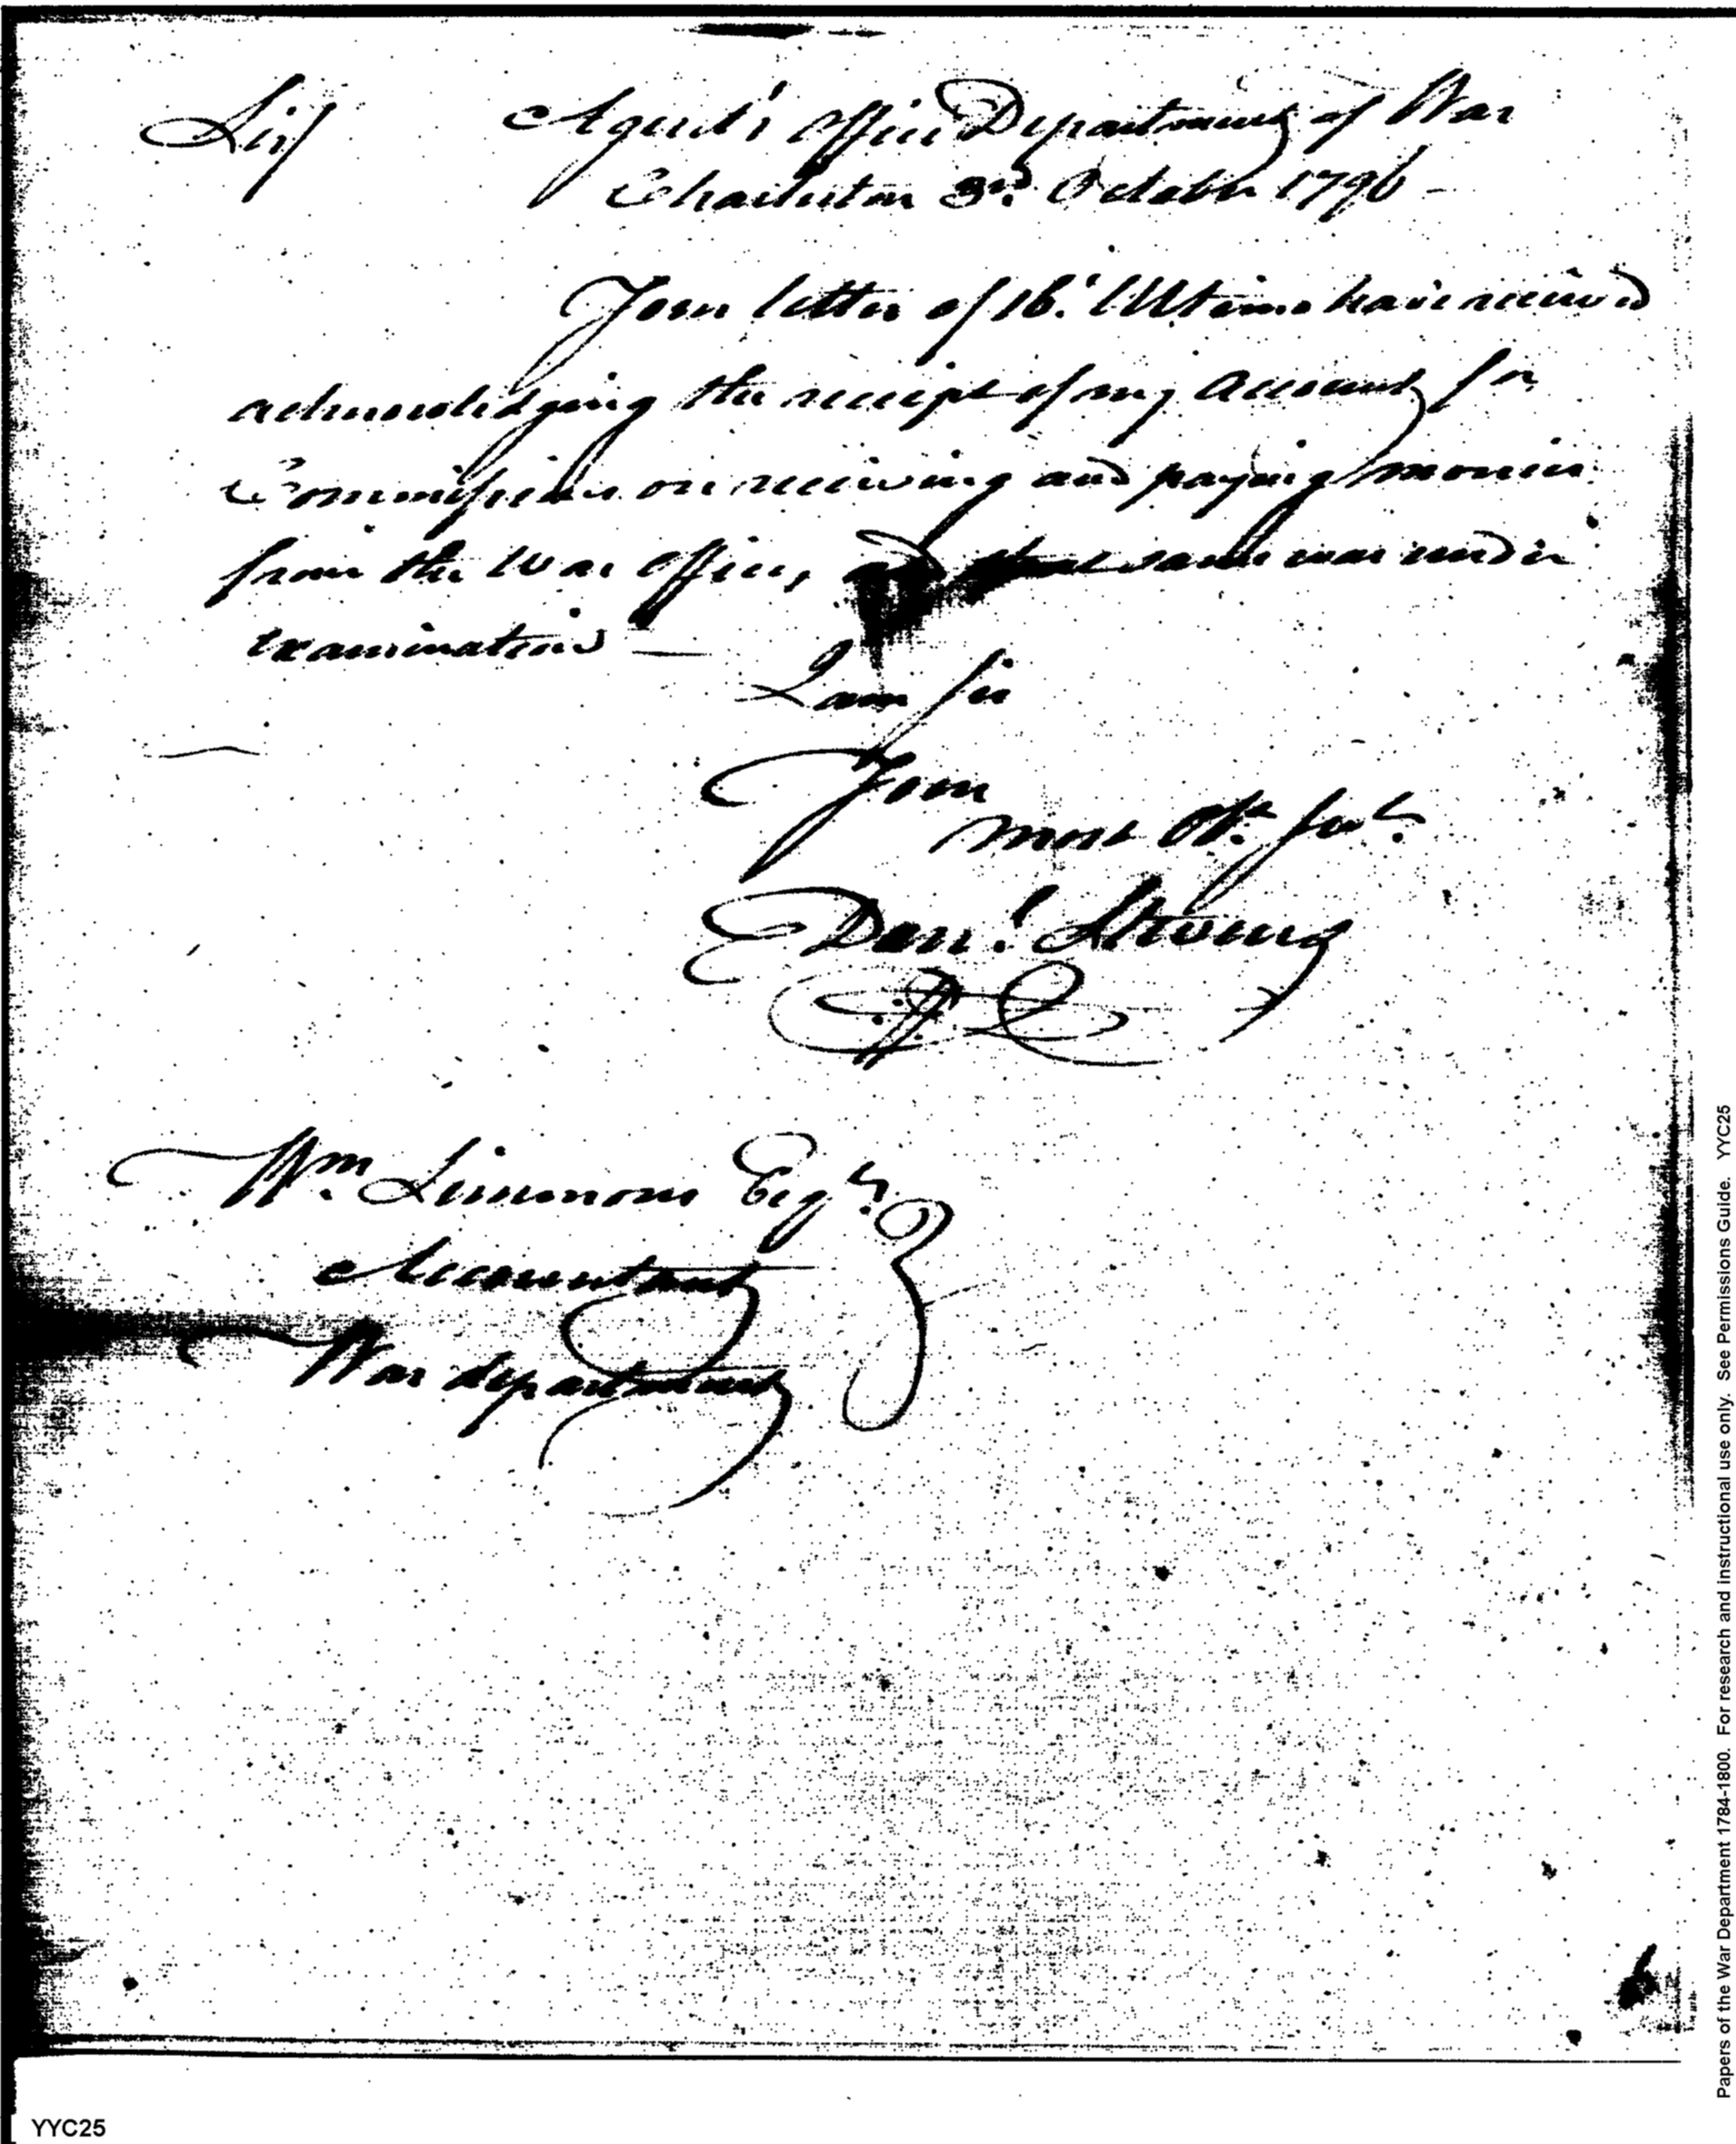 Sir/ Agent's Office Department of War
Charleston 3rd. October 1796 -
Your letter of 16. Ultimo have received
acknowledging the receipt of my Account for
Commissions on receiving and paying monies
from the War Office, and that same was under
examination —
I am Sir
Your
most Ob. Sert.
Danl. Stevens
Wm. Simmons Esqr.
Accountant
War department
YYC25
Papers of the War Department 1784-1800. For research and instructional use only. See Permissions Guide. YYC25